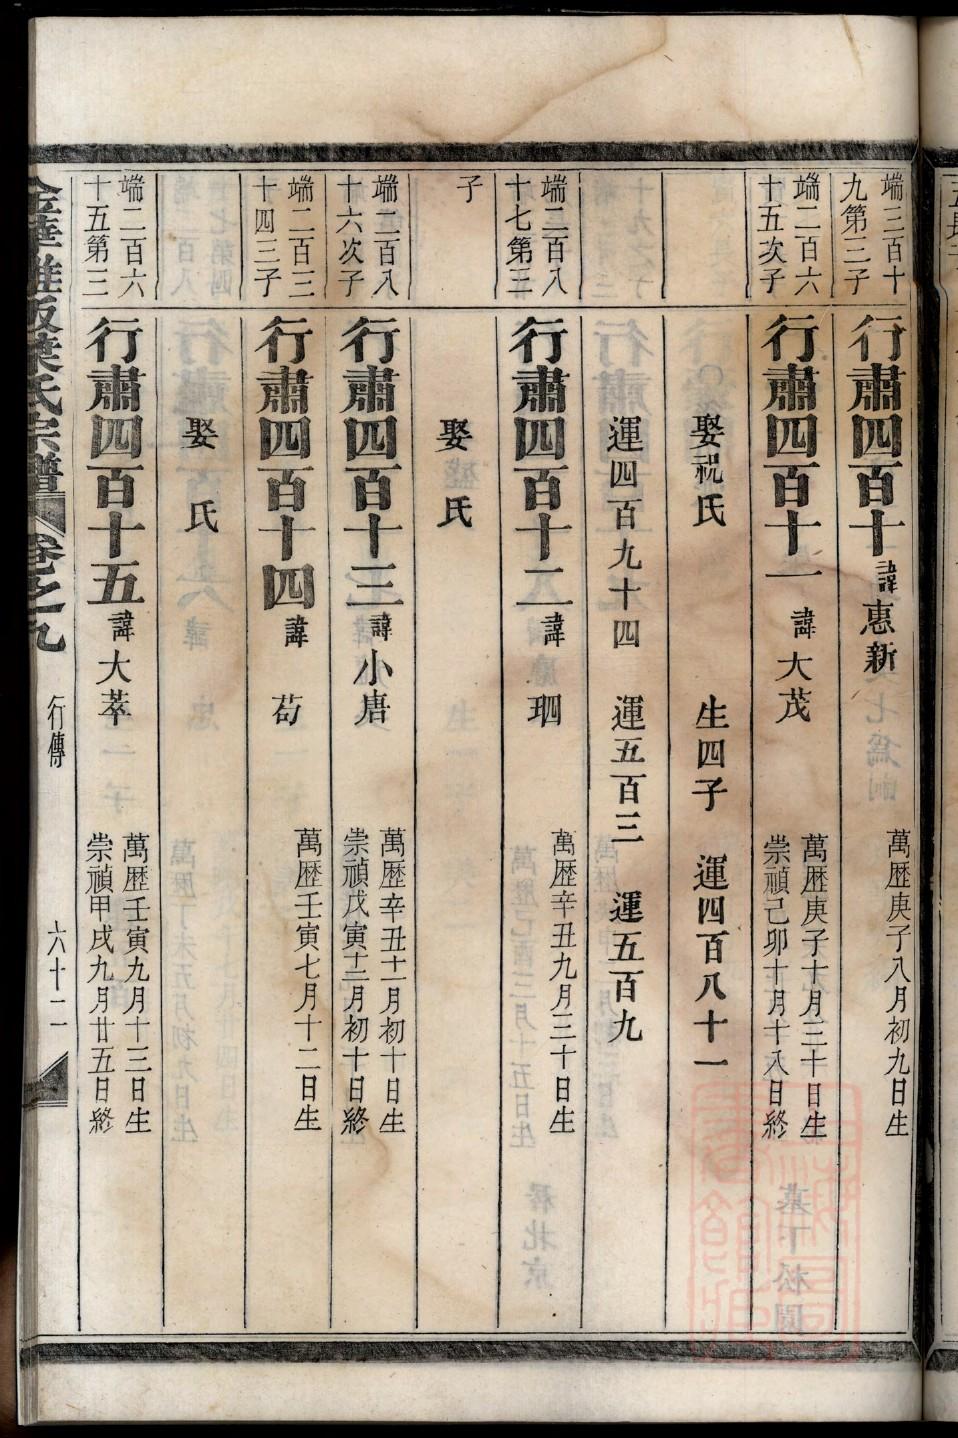 端三百十
九第三子
行肅四百十
諱惠新
萬歴庚子八月初九日生
端二百六
十五次子
行肅四百十一
諱大茂
萬歴庚子十月三十日生
崇禎己卯十月十八日終
娶祝氏
生四子
運四百八十一
運四百九十四
運五百三
運五百九
端二百八
十七第三
子
行肅四百十二
諱
萬歴辛丑九月三十日生
娶
氏
端二百八
十六次子
行肅四百十三
諱小唐
萬歴辛丑十二月初十日生
崇禎戊寅十二月初十日終
端二百三
十四三子
行肅四百十四
諱
萬歴壬寅七月十二日生
娶
氏
端二百六
十五第三
行肅四百十五
諱大萃
萬歴壬寅九月十三日生
崇禎甲戌九月廿五日終
葉氏宗譜
卷之九
行傳
六十二